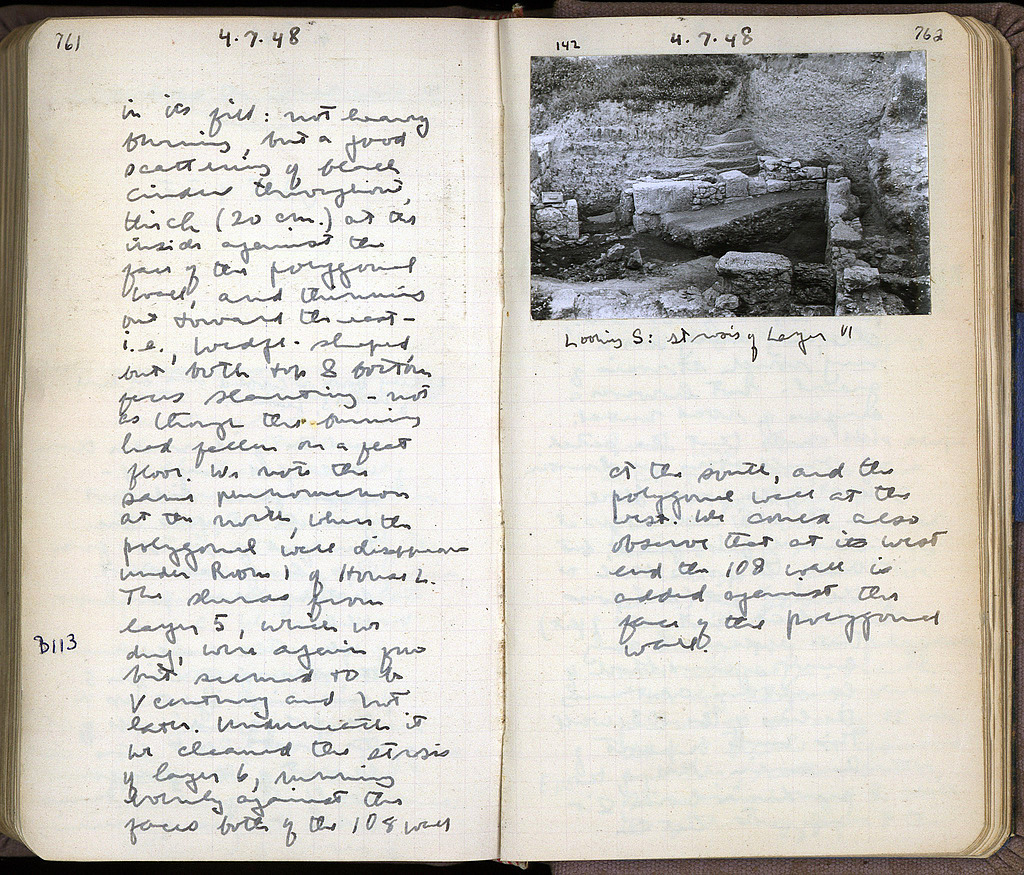 761
4.7.48
in its fill: not heavy
burning, but a good
scattering of black
cinder throughout,
thick (20 cm.) at the
inside against the
face of the polygonal
wall, and thinning
out toward the east -
i.e., wedge-shaped,
but both top & bottom
faces slanting - not
as though the burning
had fallen on a flat
floor. We note the
same phenomenon
at the north, when the
polygonal wall disappears
under Room 1 of House L.
The sherds from
layer 5, which we
dug, were again few
but seemed to be
V century and not
later. Underneath it
we cleaned the strosis
of layer 6, running
evenly against the
faces both of the 108 wall
B113
142
4.7.48
762
Looking S: strosis of Layer VI
at the south, and the
polygonal wall at the
west. We could also
observe that at its west
end the 108 wall is
added against the
face of the polygonal
wall.